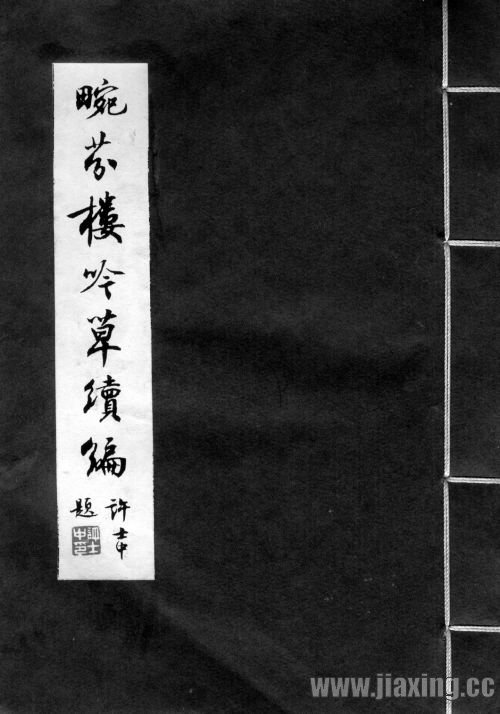 畹芬樓吟草續編
許士中
題
www.jiaxing.cc